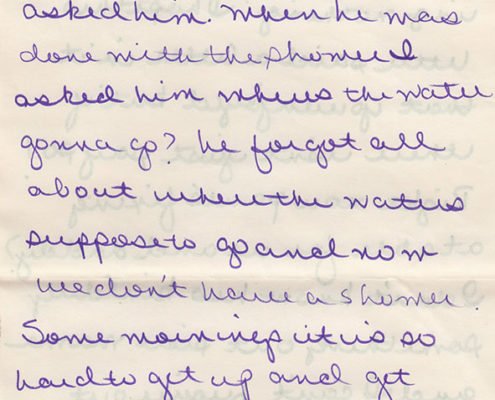 asked him. When he was
done with the shower I
asked him wheres the water
gonna go? he forgot all
about where the water is
suppose to go and now
we don't have a shower.
Some mornings it is so
hard to get up and get